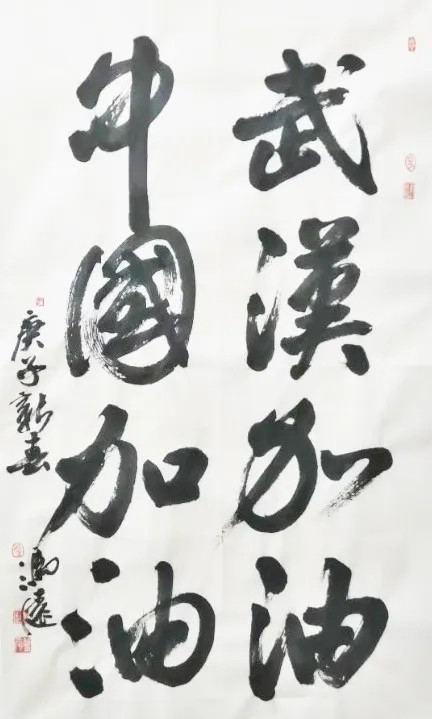 武漢加油
中國加油
庚子新春
馮遠